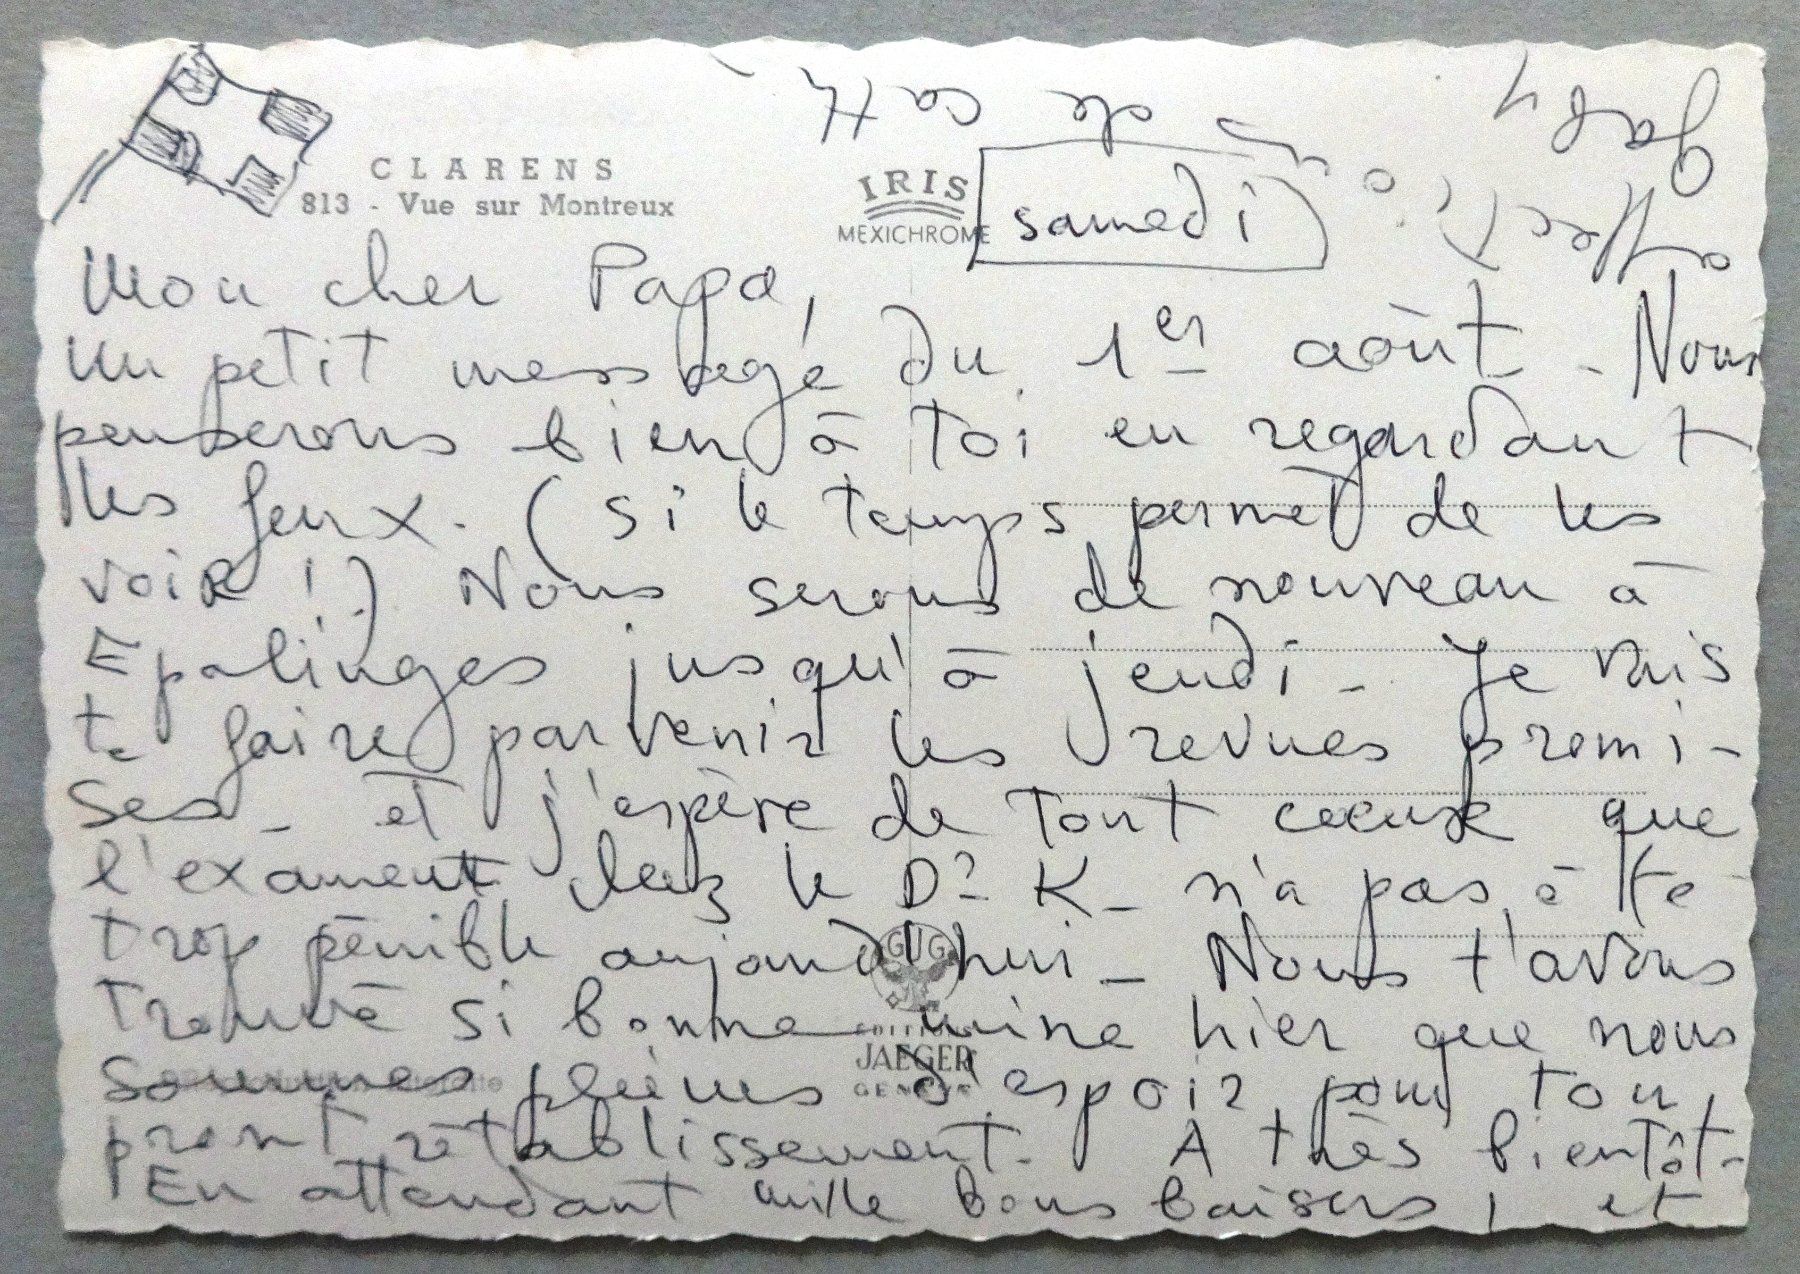 CLARENS
813 - Vue sur Montreux
IRIS
MEXICHROME
samedi
Mon cher Papa,
Un petit message du 1er août - Nous
penserons bien à toi en regardant
les feux. (si le temps permet de les
voir !) Nous serons de nouveau à
Epalinges jusqu'à jeudi - Je vais
te faire parvenir les revues promi-
ses - et j'espère de tout coeur que
l'examen chez le Dr K - n'a pas été
trop pénible aujourd'hui - Nous t'avons
trouvé si bonne mine hier que nous
sommes pleines d'espoir pour ton
prompt rétablissement. A très bientôt -
En attendant mille bons baisers, et
affection de
GUG
EDITIONS
JAEGER
GENEVE